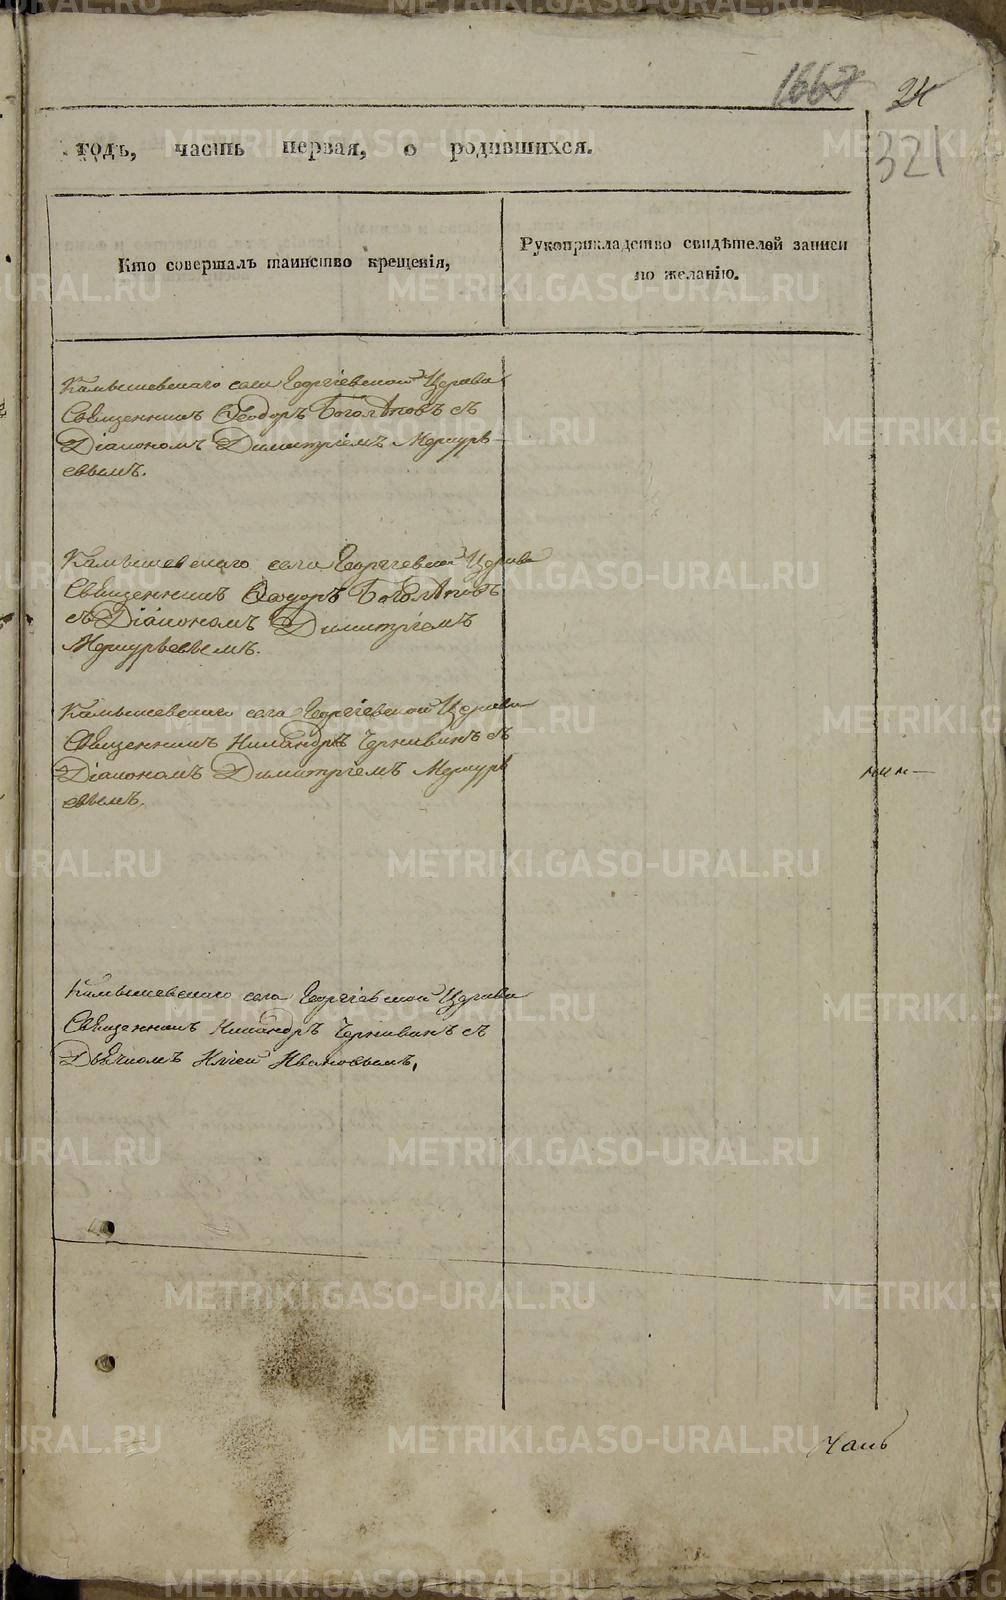 1667 24
321
годъ, часть первая, о родившихся.
Кто совершалъ таинство крещенія,
Рукоприкладство свидѣтелей записи
по желанію.
Камышевскаго села Георгіевской Церкви
Священникъ Ѳеодоръ Боголѣповъ съ
Діакономъ Димитріемъ Меркурь-
евымъ.
Камышевскаго села Георгіевской Церкви
Священникъ Ѳеодоръ Боголѣповъ
съ Діакономъ Димитріемъ
Меркурьевымъ.
Камышевскаго села Георгіевской Церкви
Священникъ Никандръ Чернавинъ съ
Діакономъ Димитріемъ Меркурь
евымъ,
Камышевскаго села Георгіевской Церкви
Священникъ Никандръ Чернавинъ съ
Дьячкомъ Иліей Ивановымъ.
METRIKI.GASO-URAL.RU